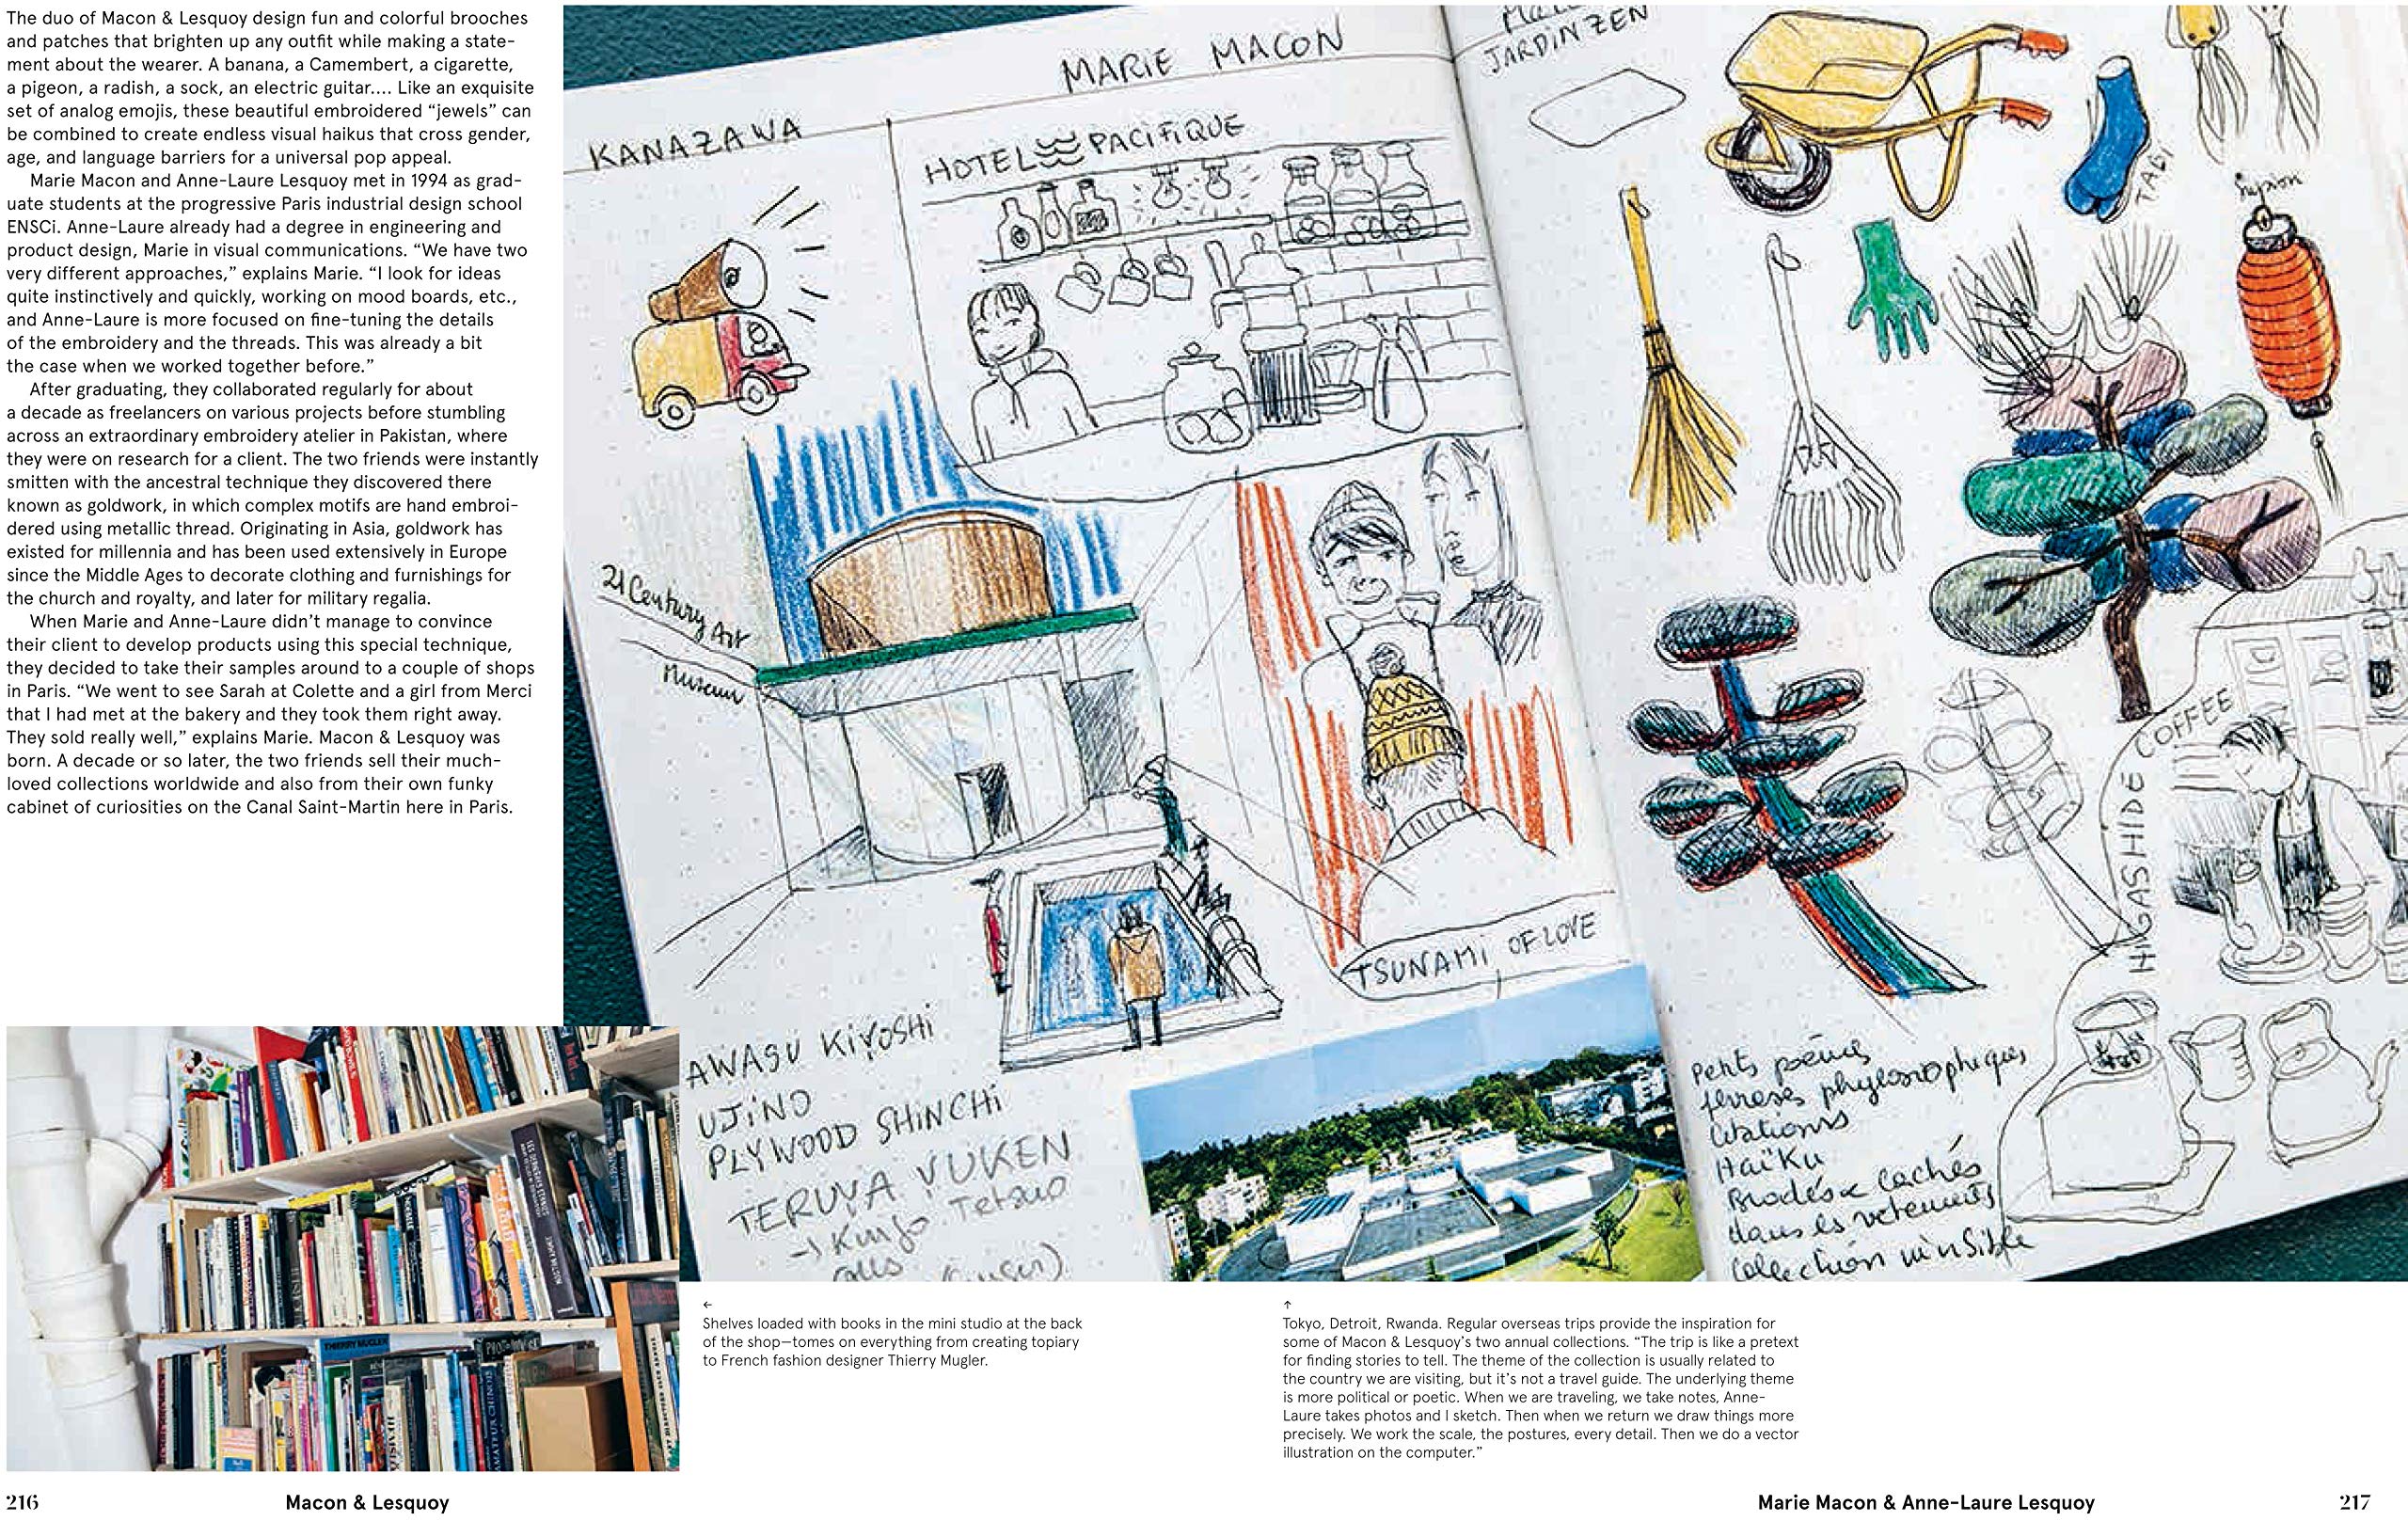 The duo of Macon & Lesquoy design fun and colorful brooches
and patches that brighten up any outfit while making a state-
ment about the wearer. A banana, a Camembert, a cigarette,
a pigeon, a radish, a sock, an electric guitar.... Like an exquisite
set of analog emojis, these beautiful embroidered “jewels” can
be combined to create endless visual haikus that cross gender,
age, and language barriers for a universal pop appeal.
Marie Macon and Anne-Laure Lesquoy met in 1994 as grad-
uate students at the progressive Paris industrial design school
ENSCi. Anne-Laure already had a degree in engineering and
product design, Marie in visual communications. “We have two
very different approaches,” explains Marie. “I look for ideas
quite instinctively and quickly, working on mood boards, etc.,
and Anne-Laure is more focused on fine-tuning the details
of the embroidery and the threads. This was already a bit
the case when we worked together before.”
After graduating, they collaborated regularly for about
a decade as freelancers on various projects before stumbling
across an extraordinary embroidery atelier in Pakistan, where
they were on research for a client. The two friends were instantly
smitten with the ancestral technique they discovered there
known as goldwork, in which complex motifs are hand embroi-
dered using metallic thread. Originating in Asia, goldwork has
existed for millennia and has been used extensively in Europe
since the Middle Ages to decorate clothing and furnishings for
the church and royalty, and later for military regalia.
When Marie and Anne-Laure didn’t manage to convince
their client to develop products using this special technique,
they decided to take their samples around to a couple of shops
in Paris. “We went to see Sarah at Colette and a girl from Merci
that I had met at the bakery and they took them right away.
They sold really well,” explains Marie. Macon & Lesquoy was
born. A decade or so later, the two friends sell their much-
loved collections worldwide and also from their own funky
cabinet of curiosities on the Canal Saint-Martin here in Paris.
MARIE MACON
KANAZAWA
HOTEL PACIFIQUE
21 Century Art
Museum
TSUNAMI OF LOVE
AWASU KIYOSHI
UJINO
PLYWOOD SHINCHI
TERUYA YUKEN
→ Kinjo Tetsuo
JARDIN ZEN
TABI
HIGASHIDE COFFEE
Petits
phylosophiques
citations
Haïku
Brodés & cachés
dans les vetements
collection invisible
THIERRY MUGLER
←
Shelves loaded with books in the mini studio at the back
of the shop—tomes on everything from creating topiary
to French fashion designer Thierry Mugler.
↑
Tokyo, Detroit, Rwanda. Regular overseas trips provide the inspiration for
some of Macon & Lesquoy’s two annual collections. “The trip is like a pretext
for finding stories to tell. The theme of the collection is usually related to
the country we are visiting, but it’s not a travel guide. The underlying theme
is more political or poetic. When we are traveling, we take notes, Anne-
Laure takes photos and I sketch. Then when we return we draw things more
precisely. We work the scale, the postures, every detail. Then we do a vector
illustration on the computer.”
216
Macon & Lesquoy
Marie Macon & Anne-Laure Lesquoy
217